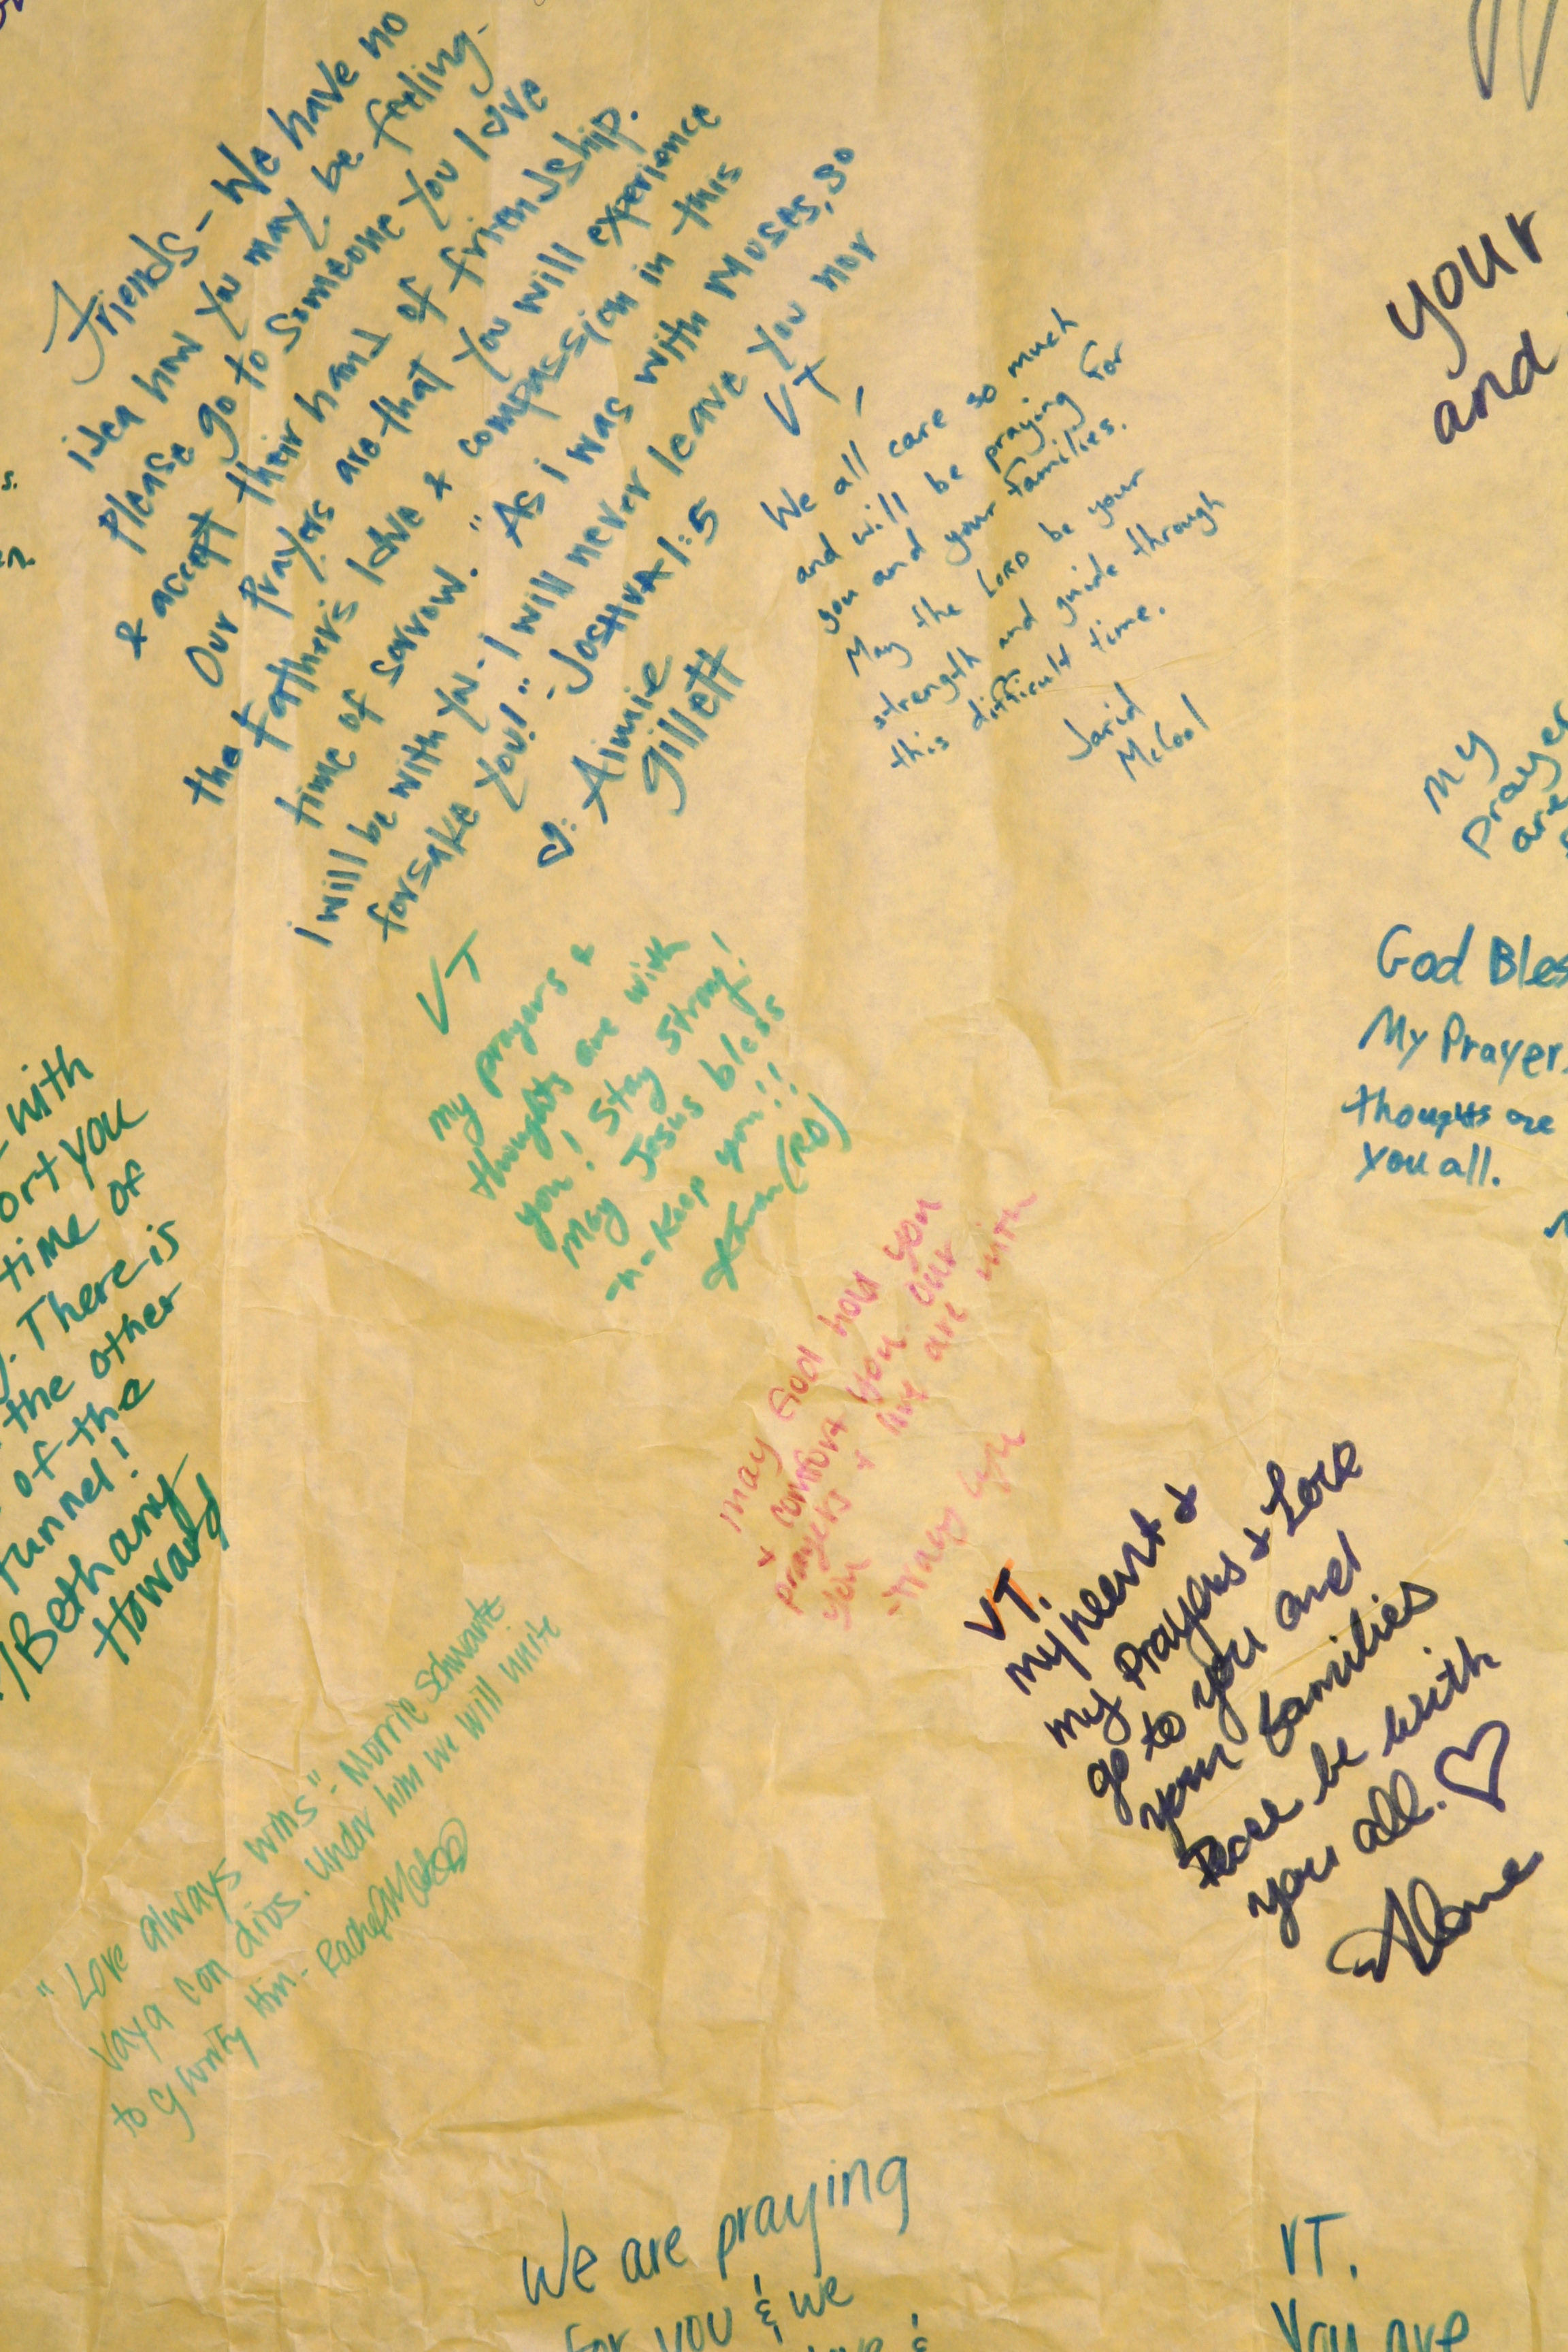 Friends - We have no
idea how you may be feeling.
Please go to someone you love
& accept their hand of friendship.
Our prayers are that you will experience
the Father's love & compassion in this
time of sorrow. "As I was with Moses, so
I will be with you. I will never leave you nor
forsake you!" - JOSHUA 1:5
Aimie
Gillett
VT,
We all care so much
and will be praying for
you and your families.
May the LORD be your
strength and guide through
this difficult time.
Jarid
McCool
your
and
My
prayer
are
God Bles
My Prayers
thoughts are
you all.
VT
my prayers &
thoughts are with
you! Stay Strong!
May Jesus bless
-n- Keep you!!
(RD)
with
ort you
time of
There is
the other
of the
tunnel!
Bethany
Howard
may God hold you
& comfort you our
prayers & are with
you
VT.
my heart &
my Prayers & Love
go to you and
your families
Peace be with
you all.
"Love always wins" - Morrie Schwartz
Vaya con dios. Under him we will unite
to glorify Him. - Rachel
We are praying
for you & we
VT.
You are